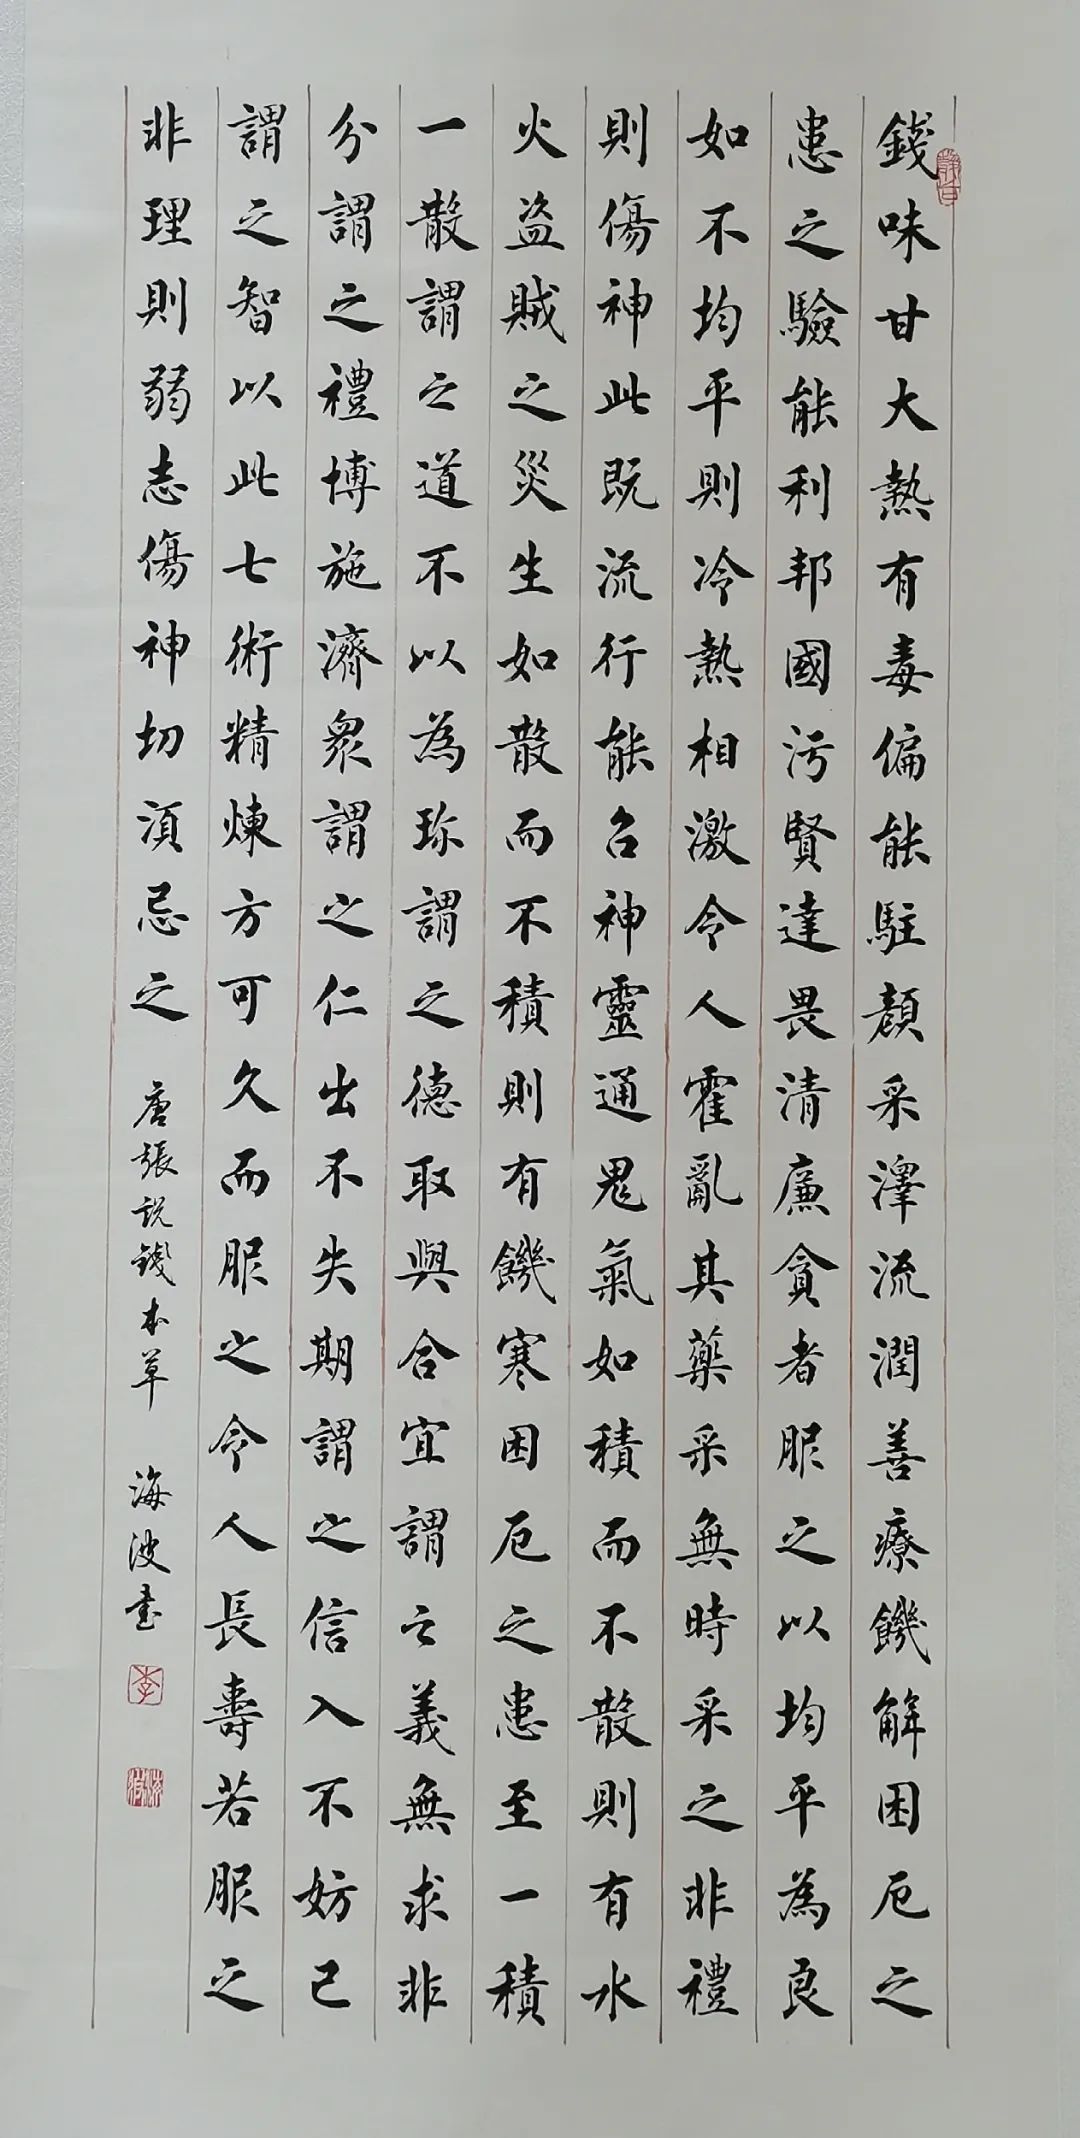 錢味甘大熱有毒偏能駐顏采澤流潤善療饑解困厄之
患之驗能利邦國污賢達畏清廉貪者服之以均平為良
如不均平則冷熱相激令人霍亂其藥采無時采之非禮
則傷神此既流行能召神靈通鬼氣如積而不散則有水
火盜賊之災生如散而不積則有饑寒困厄之患至一積
一散謂之道不以為珍謂之德取與合宜謂之義無求非
分謂之禮博施濟眾謂之仁出不失期謂之信入不妨己
謂之智以此七術精煉方可久而服之令人長壽若服之
非理則弱志傷神切須忌之 唐張說錢本草 海波書
李